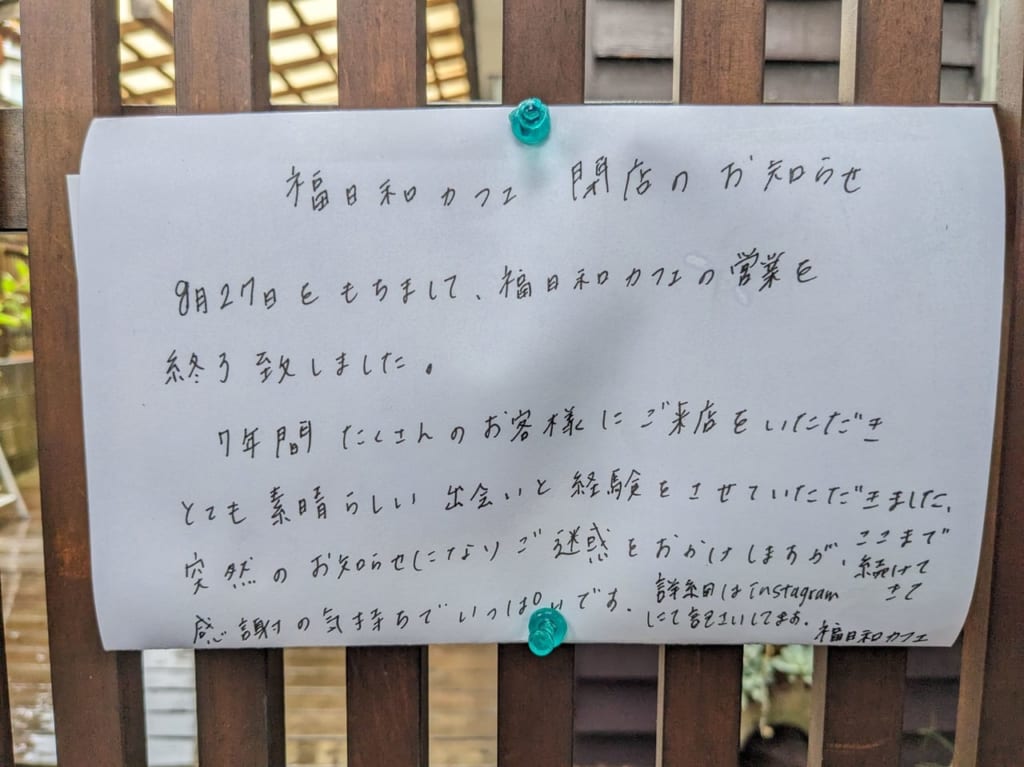 福日和カフェ 閉店のお知らせ
8月27日をもちまして、福日和カフェの営業を
終了致しました。
7年間たくさんのお客様にご来店をいただき
とても素晴らしい出会いと経験をさせていただきました。
突然のお知らせになりご迷惑をおかけしますが、ここまで
続けてきて
感謝の気持ちでいっぱいです。詳細はinstagram
にて記さいしてます。
福日和カフェ